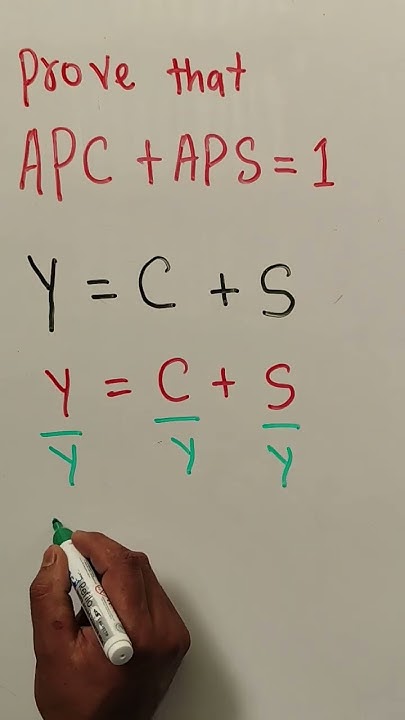 Prove that
APC + APS = 1
Y = C + S
Y = C + S
Y Y Y